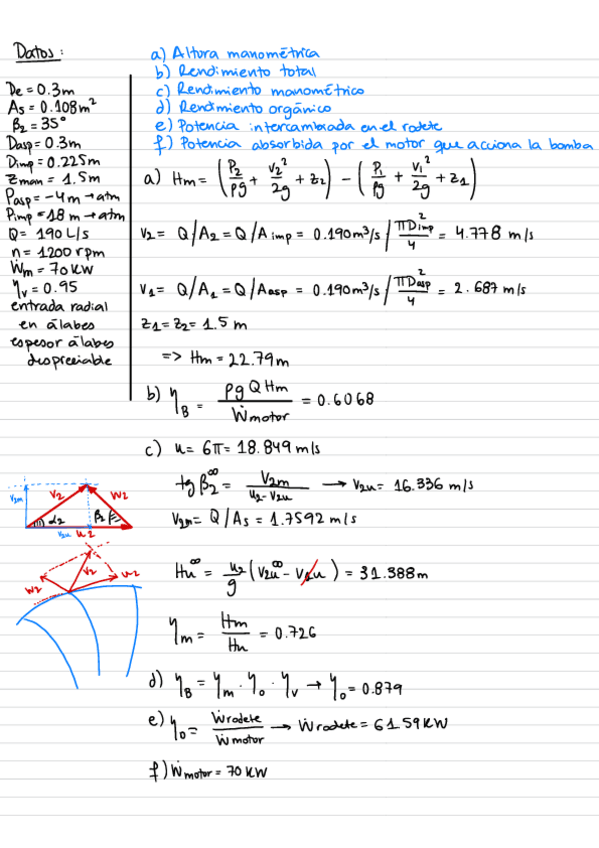 Datos:
De = 0.3m
As = 0.108m²
β2 = 35°
Dasp = 0.3m
Dimp = 0.225m
Zman = 1.5m
Pasp = -4m → atm
Pimp = 18 m → atm
Q = 190 L/s
n = 1200 rpm
Ẇm = 70 KW
ηv = 0.95
entrada radial
en álabes
espesor álabes
despreciable
a) Altura manométrica
b) Rendimiento total
c) Rendimiento manométrico
d) Rendimiento orgánico
e) Potencia intercambiada en el rodete
f) Potencia absorbida por el motor que acciona la bomba
a) Hm = (P2/ρg + v2²/2g + z2) - (P1/ρg + v1²/2g + z1)
v2 = Q/A2 = Q/Aimp = 0.190m³/s / πDimp²/4 = 4.778 m/s
v1 = Q/A1 = Q/Aasp = 0.190m³/s / πDasp²/4 = 2.687 m/s
z1 = z2 = 1.5 m
=> Hm = 22.79m
b) ηB = ρgQHm/Ẇmotor = 0.6068
c) u = 6π = 18.849 m/s
tg β2^∞ = V2m/(u2 - v2u) → v2u = 16.336 m/s
V2m = Q/As = 1.7592 m/s
Hu^∞ = u2/g (v2u^∞ - v1u) = 31.388m
ηm = Hm/Hu = 0.726
d) ηB = ηm · ηo · ηv → ηo = 0.879
e) ηo = Ẇrodete/Ẇmotor → Ẇrodete = 61.59KW
f) Ẇmotor = 70 KW
v2m
v2
w2
α2
β2
v2u
u2
w2
v2
u2